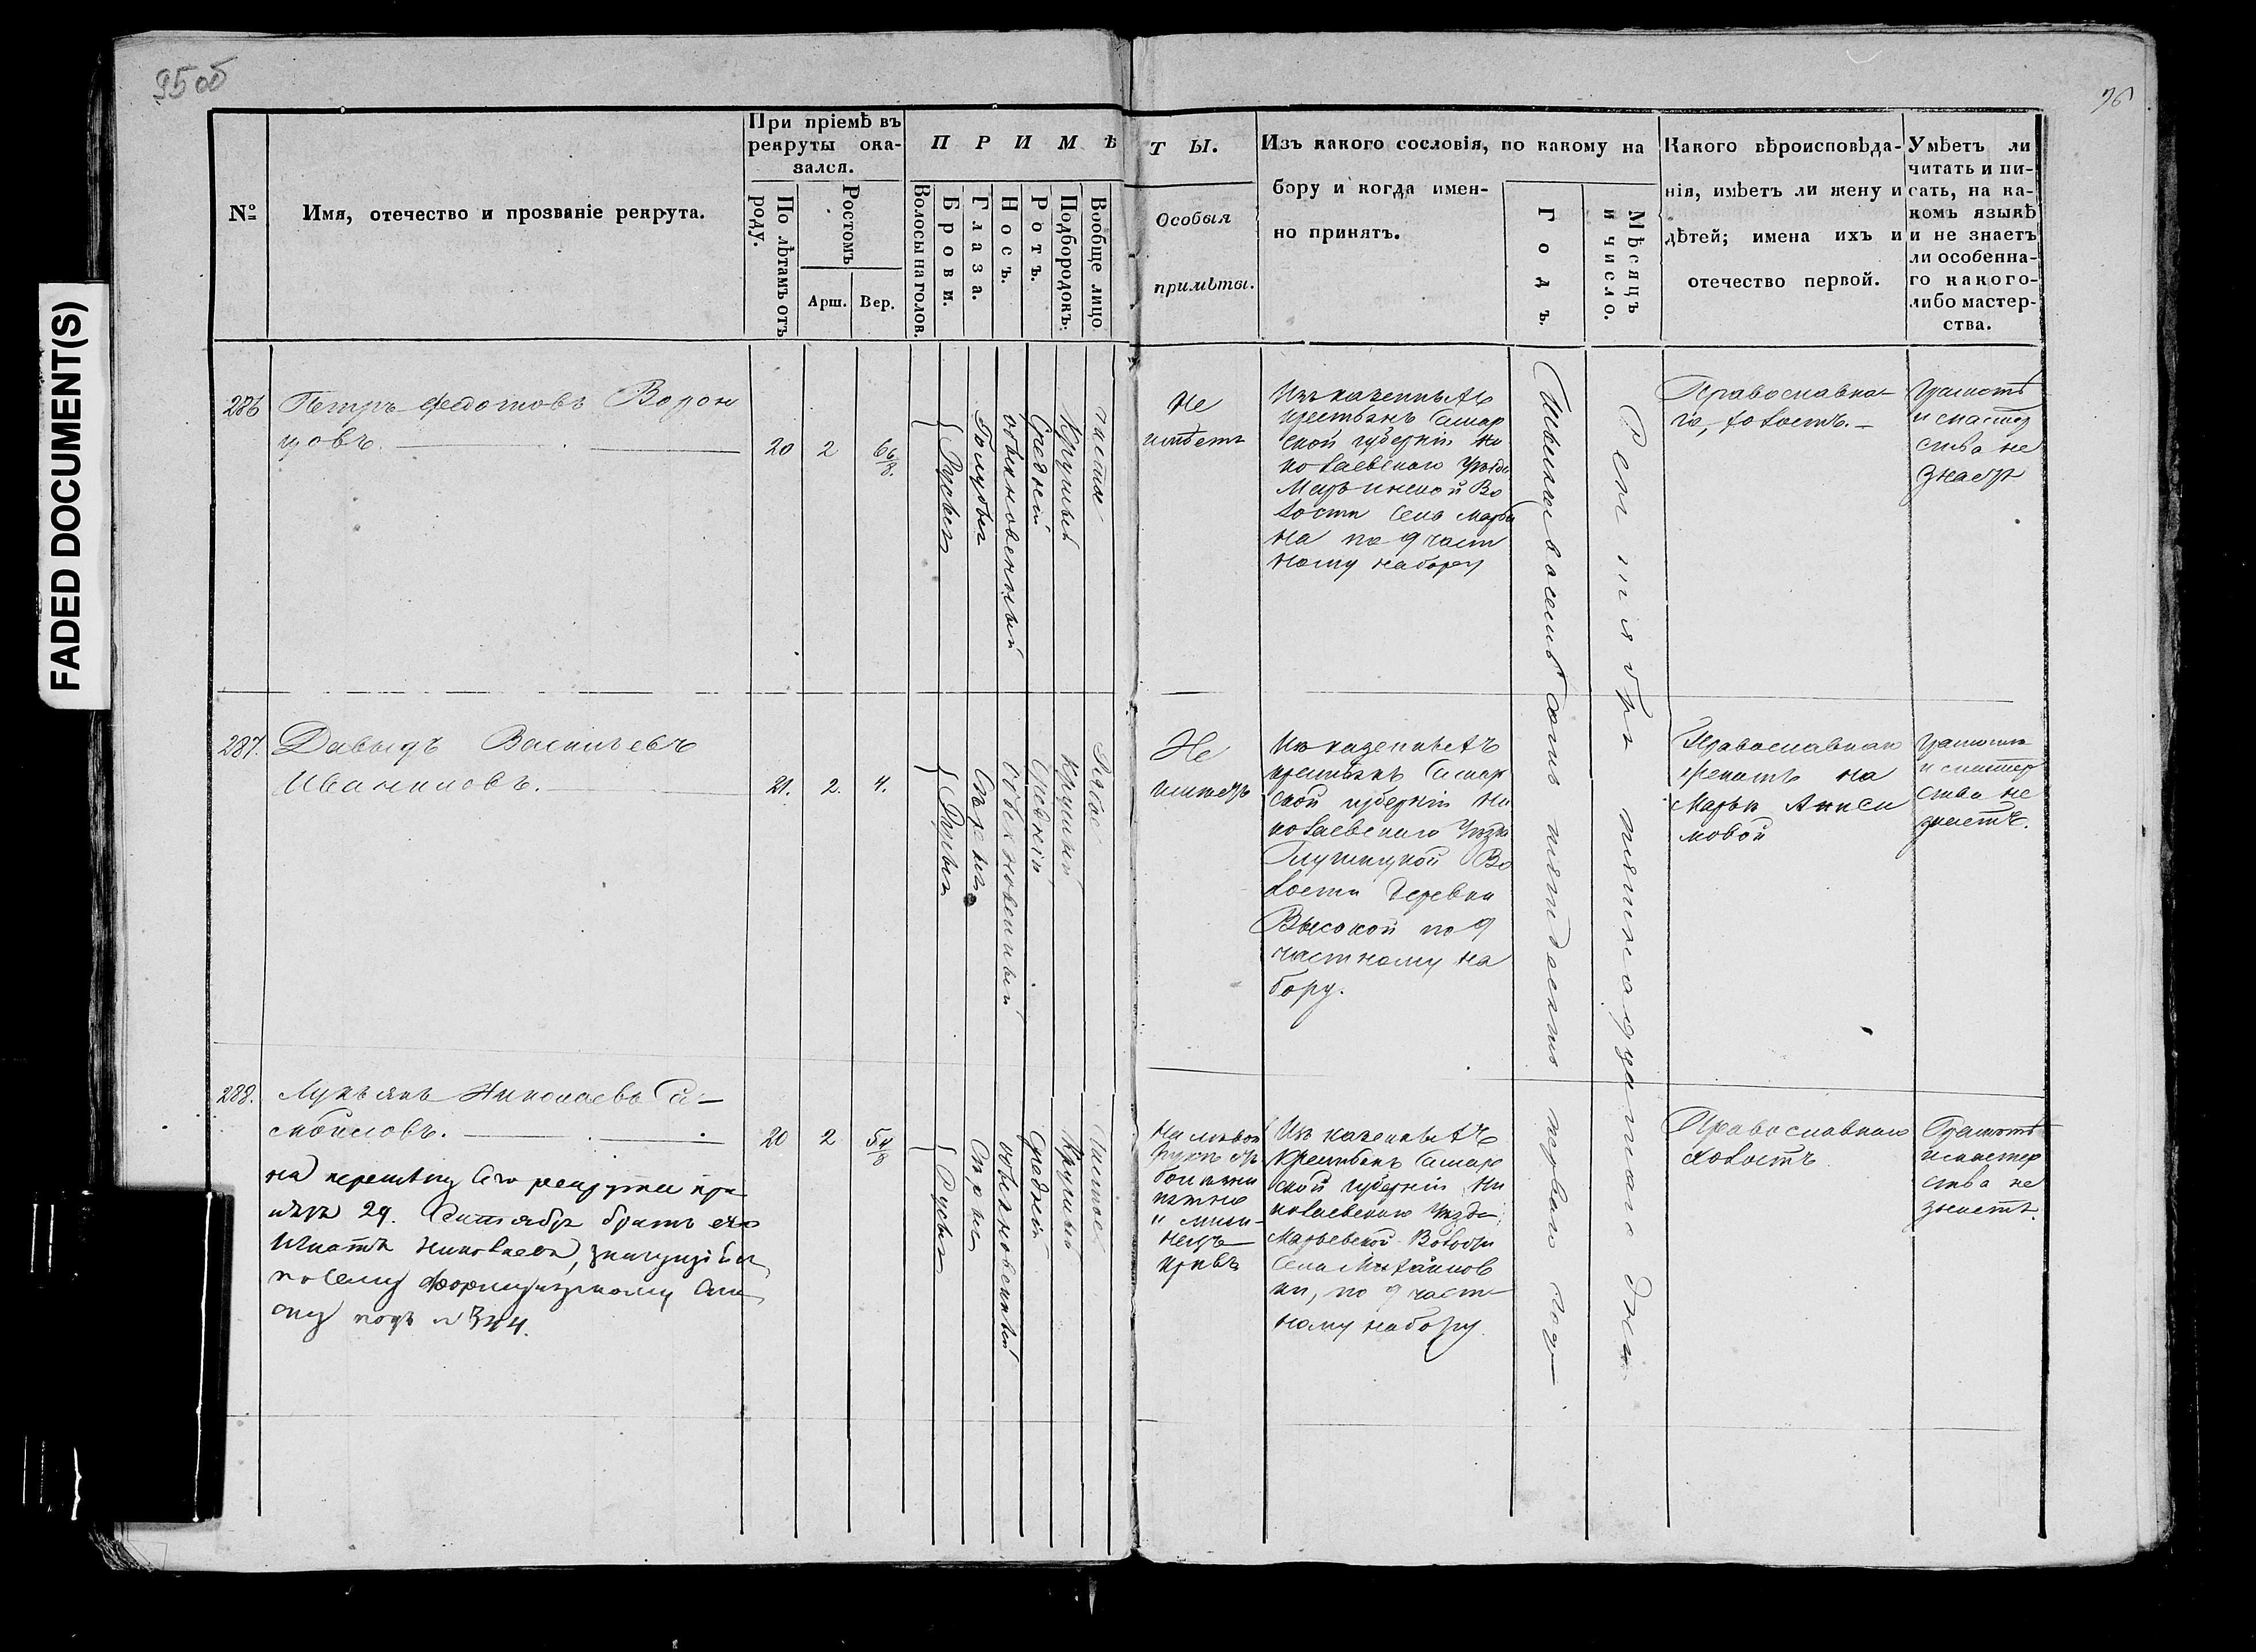 FADED DOCUMENT(S)
95 об
96
№
Имя, отечество и прозваніе рекрута.
При пріемѣ въ
рекруты ока-
зался.
По лѣтамъ отъ
роду.
Ростомъ
Арш.
Вер.
ПРИМѢ
Волосы на голов.
Брови.
Глаза.
Носъ.
Ротъ.
Подбородокъ:
Вообще лицо
ТЫ.
Особыя
примѣты.
Изъ какого сословія, по какому на
бору и когда имен-
но принятъ.
Годъ.
Мѣсяцъ
и число.
Какого вѣроисповѣда-
нія, имѣетъ ли жену и
дѣтей; имена ихъ и
отечество первой.
Умѣетъ ли
читать и пи-
сать, на ка-
комъ языкѣ
и не знаетъ
ли особенна-
го какого-
либо мастер-
ства.
286
Петръ Федотовъ Ворон
цовъ.
20
2
6 6/8.
Русыя
Голубыя
обыкновенный
Средній
Круглый
чистое
Не
имѣетъ
Изъ казенныхъ
крестьянъ Самар
ской губерніи Ни
колаевскаго Уѣзда
Марьинской Во
лости Села Марьи
на по 9 част
ному набору
Тысяча восемьсотъ пятьдесятъ перваго года
Сентября пятнадцатаго дня
Православна-
го, холостъ.-
Грамотѣ
и мастер
ства не
знаетъ
287.
Давыдъ Васильевъ
Иваниловъ.
21.
2.
4.
Русыя
Сѣрыя
Обыкновенный
Средній
Круглый
Рябое
Не
имѣетъ
Изъ казенныхъ
крестьянъ Самар
ской губерніи Ни
колаевскаго Уѣзда
Глушицкой Во
лости Деревни
Высокой по 9
частному на
бору.
Православнаго
женатъ на
Марьѣ Аниси
мовой
Грамотѣ
и мастер
ства не
знаетъ.
288.
Лукьянъ Николаевъ Са-
мойловъ.
20
2
5 4/8
на перемѣну сего рекрута при-
нятъ 29. Сентября братъ его
Игнатъ Николаевъ, значущійся
по сему формулярному спи
ску подъ № 344.
Русыя
Сѣрыя
обыкновенный
Средній
Круглый
Чистое
На лѣвой
рукѣ отъ
боли
пятно
и мизи-
нецъ
кривъ
Изъ казенныхъ
Крестьянъ Самар
ской губерніи Ни
колаевскаго Уѣзда
Марьевской Волости
Села Михайлов
ки, по 9 част-
ному набору.
Православнаго
холостъ
Грамотѣ
и мастер
ства не
знаетъ.